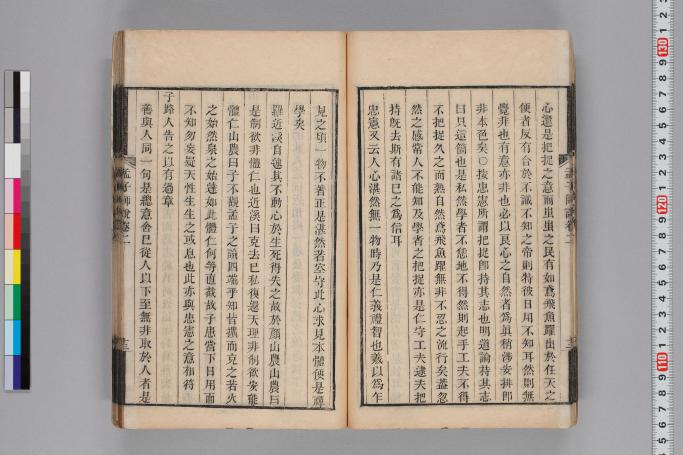 心還是把捉之意而蚩蚩之民有如鳶飛魚躍出於任天之
便者反有合於不識不知之帝則特彼日用不知耳然則無
覺非也有意亦非也必以良心之自然者為眞稍涉安排即
非本色矣○按忠憲所謂把捉即持其志也明道論持其志
曰只這箇也是私然學者不恁地不得然則起手工夫不得
不把捉久之而熟自然鳶飛魚躍無非不忍之流行矣蓋忽
然之感常人不能知及學者之把捉亦是仁守工夫逮夫把
持旣去斯有諸己之為信耳
忠憲又云人心湛然無一物時乃是仁義禮智也羲以為乍
見之頃一物不著正是湛然若空守此心求見本體便是禪
學矣
羅近溪自述其不動心於生死得失之故於顏山農山農曰
是制欲非體仁也近溪曰克去己私復還天理非制欲安能
體仁山農曰子不觀孟子之論四端乎知皆擴而充之若火
之始然泉之始達如此體仁何等直截故子患當下日用而
不知勿妄疑天性生生之或息也此亦與忠憲之意相符
子路人告之以有過章
善與人同一句是總意舍己從人以下至無非取於人者是
孟子師說卷二
十三